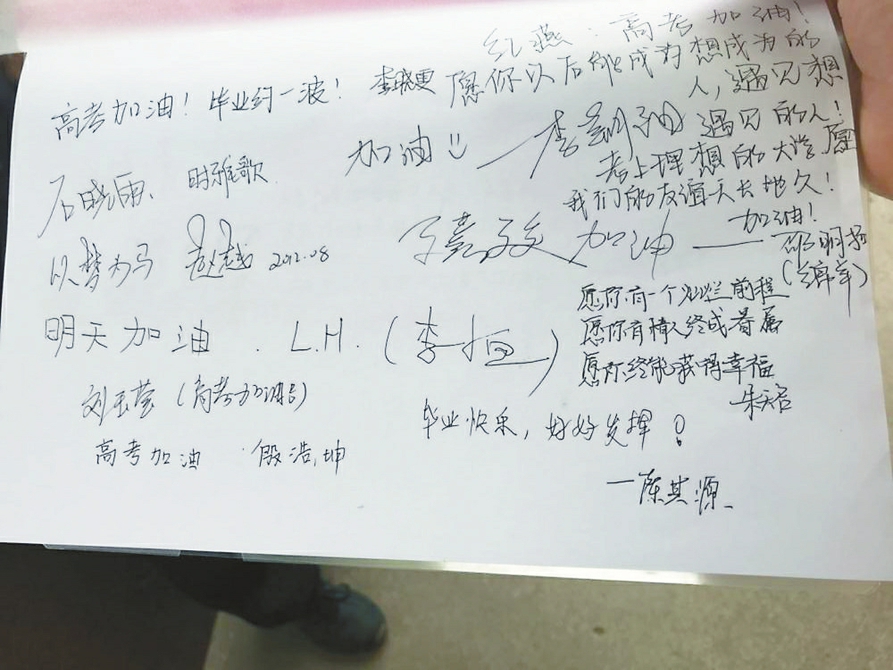 红燕：高考加油！
愿你以后能成为想成为的
人，遇见想
遇见的人！
考上理想的大学愿
我们的友谊天长地久！
高考加油！毕业约一波！ 李晓更
加油
石晓雨 时雅歌
以梦为马 赵越 2012.08
加油
加油！
明天加油 . L.H. (李恒)
愿你有一个灿烂前程
愿你有情人终成眷属
愿你终能获得幸福
刘玉莹 (高考加油)
毕业快乐，好好发挥！
高考加油 殷浩坤
—陈其源